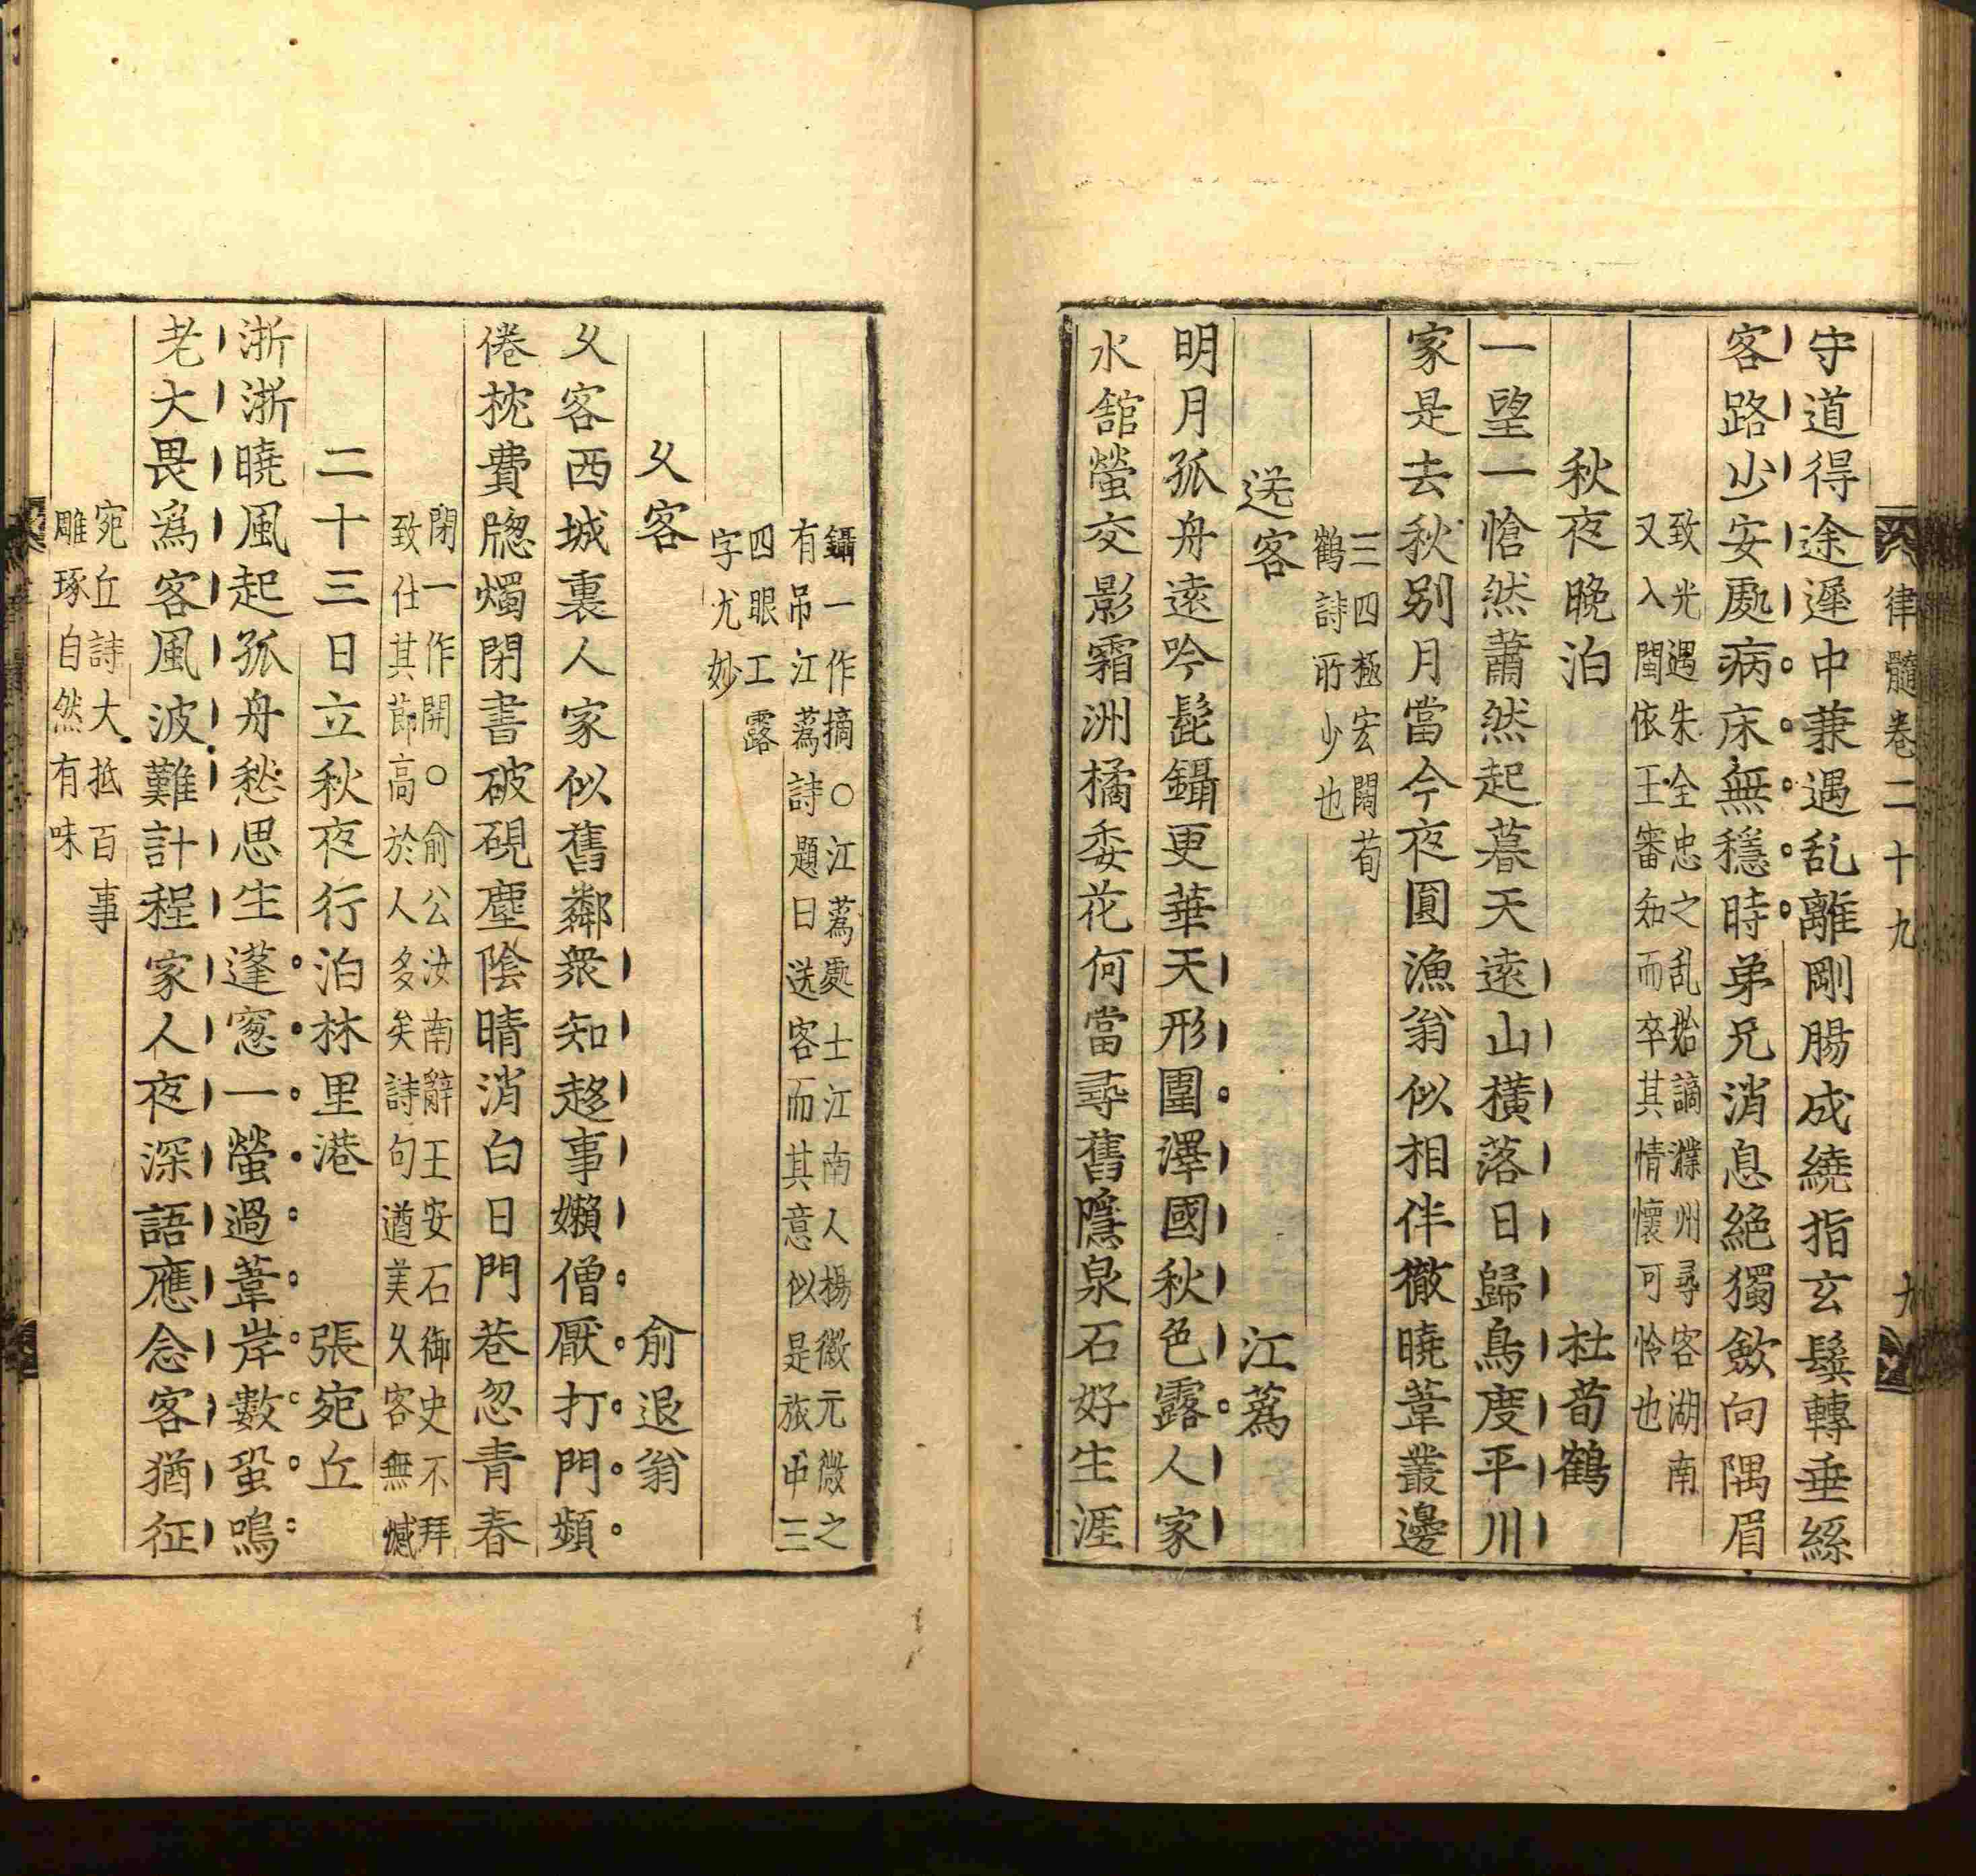 律髓卷二十九
九
守道得途遲中兼遇乱離剛腸成繞指玄鬢轉垂絲
客路少安處病床無穩時弟兄消息絕獨歛向隅眉
致光遇朱全忠之乱始謫濮州尋客湖南
又入閩依王審知而卒其情懷可怜也
秋夜晚泊 杜荀鶴
一望一愴然蕭然起暮天遠山橫落日歸鳥度平川
家是去秋別月當今夜圓漁翁似相伴徹曉葦叢邊
三四極宏闊荀
鶴詩所少也
送客 江蒍
明月孤舟遠吟髭鑷更華天形圍澤國秋色露人家
水舘螢交影霜洲橘委花何當尋舊隱泉石好生涯
鑷一作摘○江蒍處士江南人楊徽元微之
有吊江蒍詩題曰送客而其意似是旅中三
四眼工露
字尤妙
乆客 俞退翁
乆客西城裏人家似舊鄰衆知趍事嬾僧厭打門頻
倦枕費牕燭閉書破硯塵陰晴消白日門巷忽青春
閉一作開○俞公汝南辭王安石御史不拜
致仕其節高於人多矣詩句遒美乆客無憾
二十三日立秋夜行泊林里港 張宛丘
淅淅曉風起孤舟愁思生蓬窓一螢過葦岸數蛩鳴
老大畏爲客風波難計程家人夜深語應念客猶征
宛丘詩大抵百事
雕琢自然有味